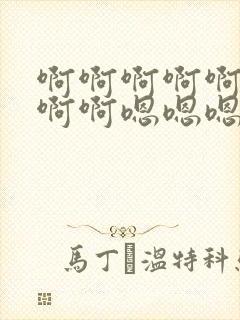 啊啊啊啊啊
啊啊嗯嗯嗯
馬丁�溫特科